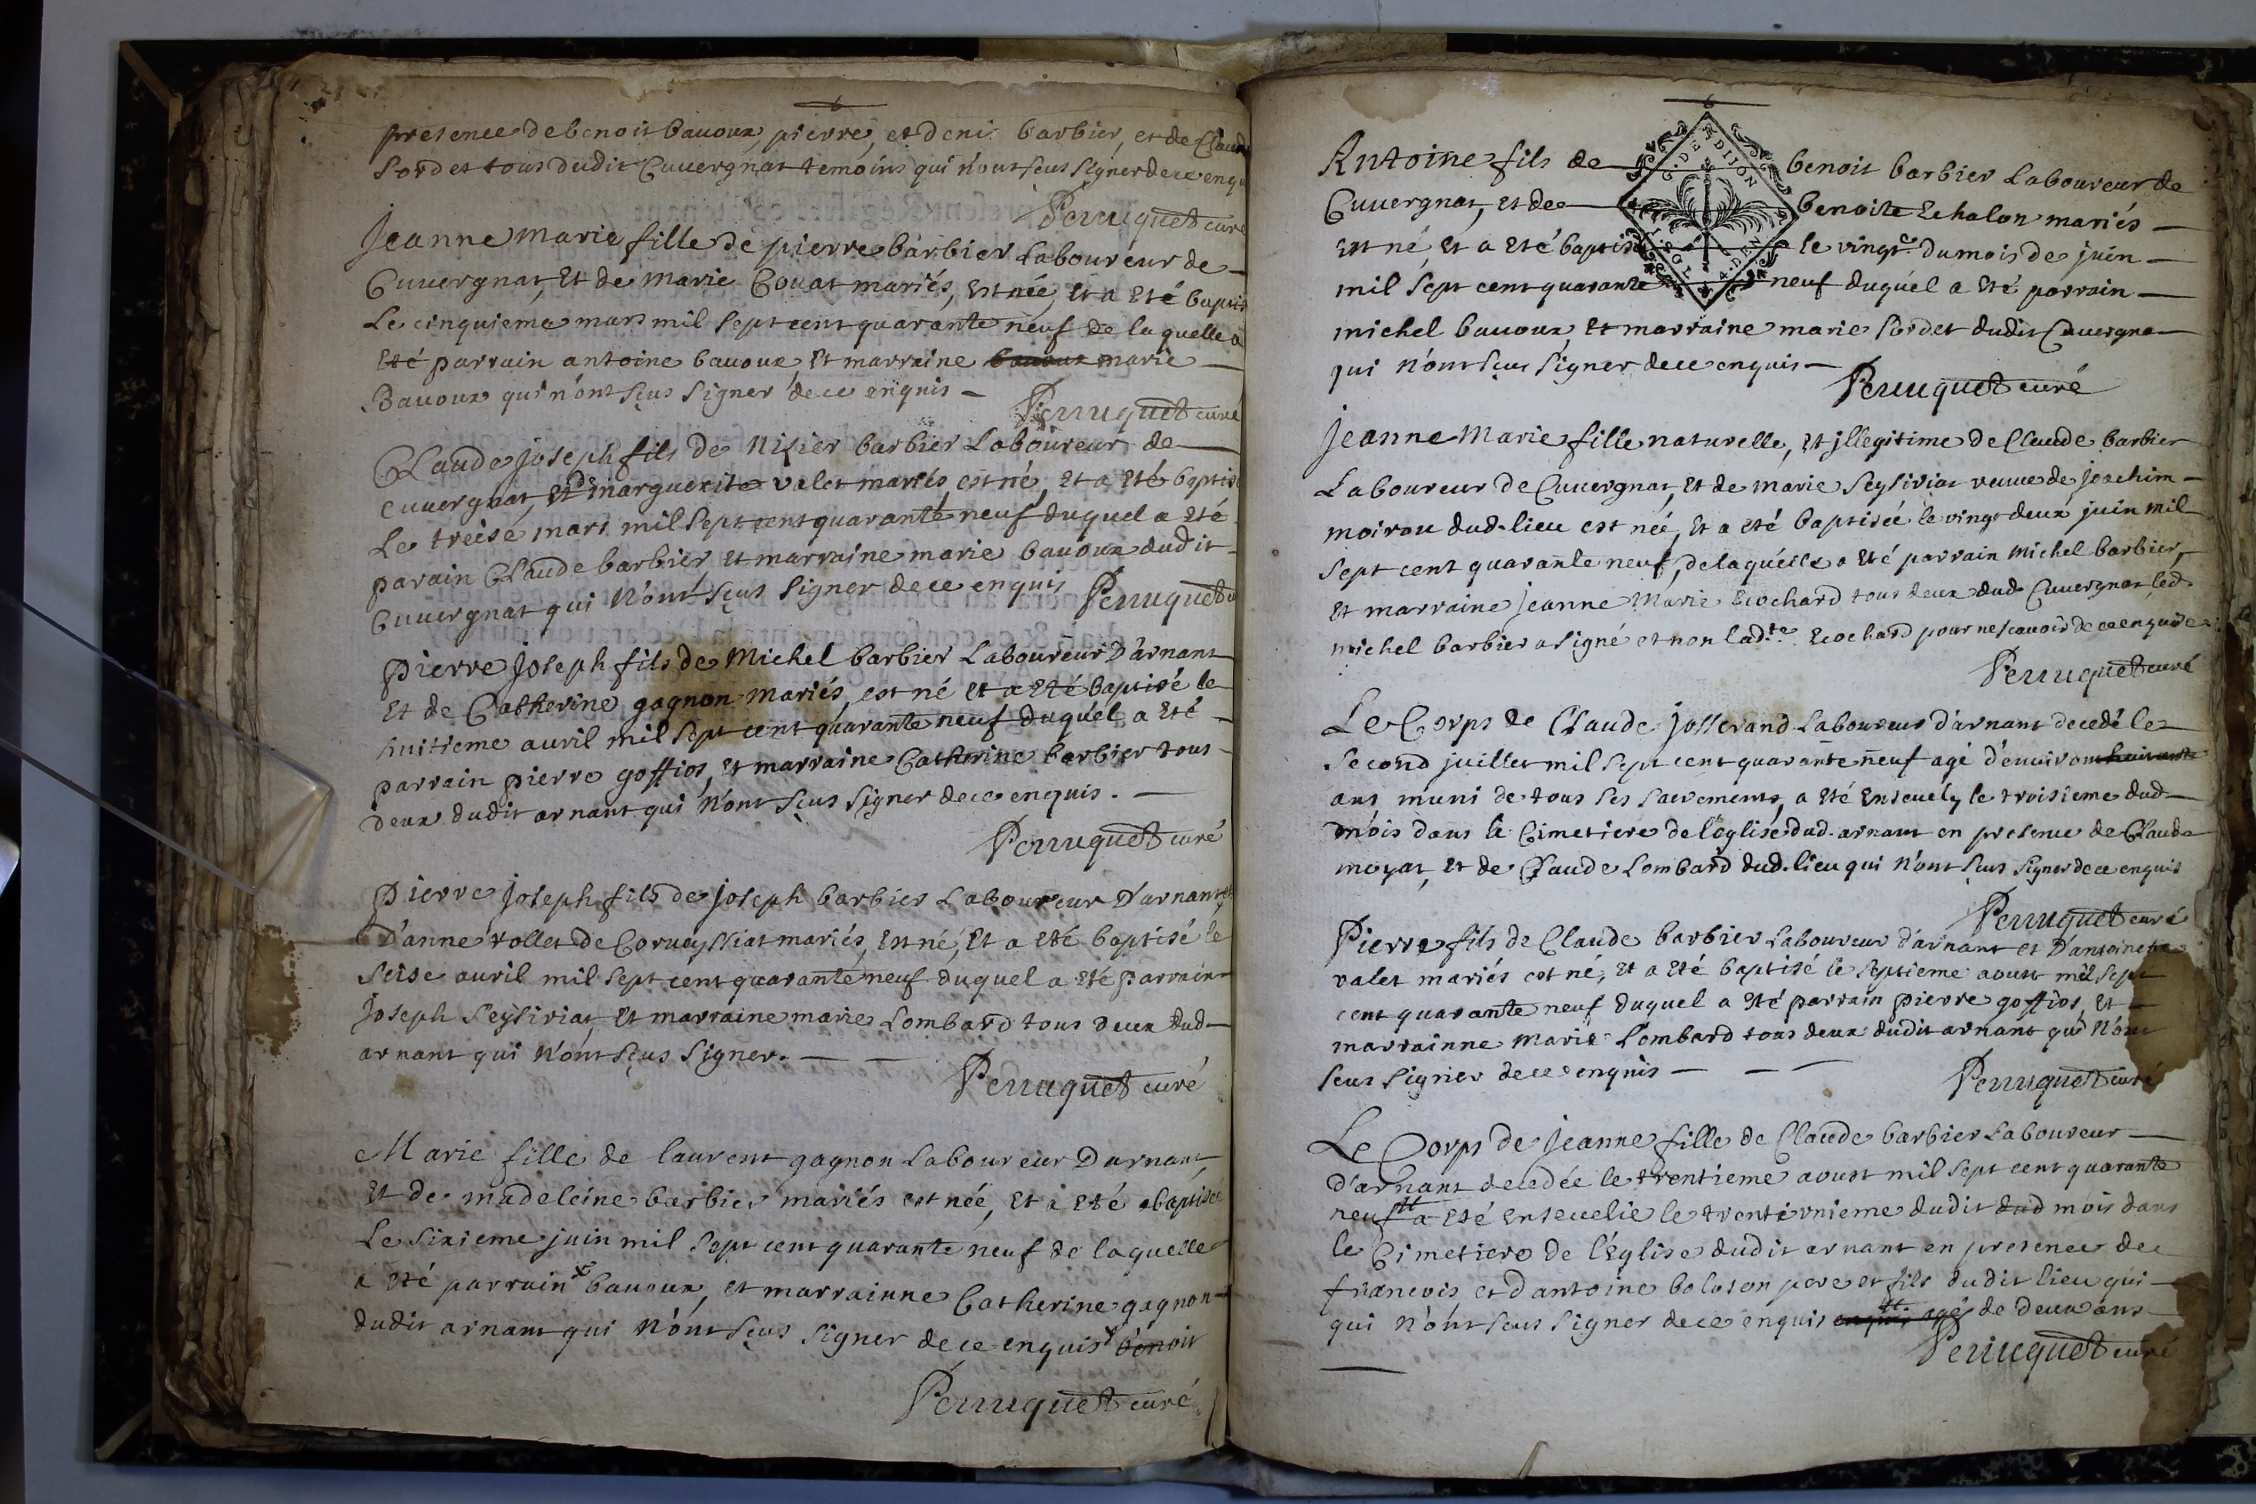 6
presence de benoit bavoux, pierre, et denis barbier, et de Claude
Sordet tous dudit Cuvergnat temoins qui n'ont sçus signer de ce enquis
Perruquet curé
Jeanne marie fille de pierre barbier Laboureur de
Cuvergnat, et de marie Covat mariés, est née, et a eté baptisé
Le cinquieme mars mil sept cent quarante neuf de laquelle a
eté parrain antoine bavoux, et marraine bavoux marie
Bavoux qui n'ont sçus signer de ce enquis
Perruquet curé
Claude joseph fils de Nizier barbier Laboureur de
Cuvergnat, et marguerite valet mariés, est né, et a eté baptisé
Le treise mars mil sept cent quarante neuf duquel a eté
parain Claude barbier et marraine marie bavoux dudit
Cuvergnat qui n'ont sçus signer de ce enquis Perruquet
pierre joseph fils de Michel barbier Laboureur D'arnant
et de Catherine gagnon mariés, est né et a eté baptisé le
huitieme avril mil sept cent quarante neuf duquel a eté
parrain pierre goffios, et marraine Catherine barbier tous
deux dudit arnant qui n'ont sçus signer de ce enquis.
Perruquet curé
Pierre joseph fils de joseph barbier Laboureur D'arnant, et
D'anne vollet de Corveyssiat mariés, est né, et a eté baptisé le
seise avril mil sept cent quarante neuf duquel a eté parrain
Joseph Seysiriat, et marraine marie Lombard tous deux dud.
arnant qui n'ont sçus signer.
Perruquet curé
Marie fille de laurent gagnon Laboureur Darnant,
et de madeleine barbier mariés est née, et a eté baptisée
Le sixieme juin mil sept cent quarante neuf de laquelle
a eté parrain x bavoux, et marrainne Catherine gagnon
dudit arnant qui n'ont sçus signer de ce enquis x benoit
Perruquet curé
6
G. DE DIJON
1. SOL 4. DEN
Antoine fils de benoit barbier Laboureur de
Cuvergnat, et de benoite Echalon mariés
est né, et a eté baptisé le vingt.e du mois de juin
mil sept cent quarante neuf duquel a eté parrain
michel bavoux, et marraine marie Sordet dudit Cuvergna
qui n'ont sçus signer de ce enquis
Perruquet curé
Jeanne Marie fille naturelle, et illegitime de Claude barbier
Laboureur de Cuvergnat, et de marie Seysiriat veuve de joachim
moirou dud. lieu est née, et a eté baptisée le vingt deux juin mil
sept cent quarante neuf, de laquelle a eté parrain michel barbier,
et marraine jeanne Marie Ecochard tous deux dud. Cuvergnat led.
michel barbier a signé et non lad.te Ecochard pour ne scavoir de ce enquise
Perruquet curé
Le Corps de Claude josserand Laboureur d'arnant decedé le
second juillet mil sept cent quarante neuf agé d'environ huitante
ans muni de tous ses sacrements, a eté ensevely le troisieme dud.
mois dans le Cimetiere de l'eglise dud. arnant en presence de Claude
moyat, et de Claude Lombard dud. lieu qui n'ont sçus signer de ce enquis
Perruquet curé
Pierre fils de Claude barbier Laboureur d'arnant et D'antoinette
valet mariés est né, et a eté baptisé le septieme aoust mil sept
cent quarante neuf duquel a eté parrain pierre goffios, et
marrainne Marie Lombard tous deux dudit arnant qui n'ont
sçus signer de ce enquis
Perruquet curé
Le Corps de Jeanne fille de Claude barbier Laboureur
d'arnant decedée le trentieme aoust mil sept cent quarante
neuf a eté ensevelie le trente unieme dudit dud mois dans
le Cimetiere de l'Eglise dudit arnant en presence de
francois et d'antoine boloson pere et fils dudit lieu qui
qui n'ont sçus signer de ce enquis enquis agée de deux ans
Perruquet curé